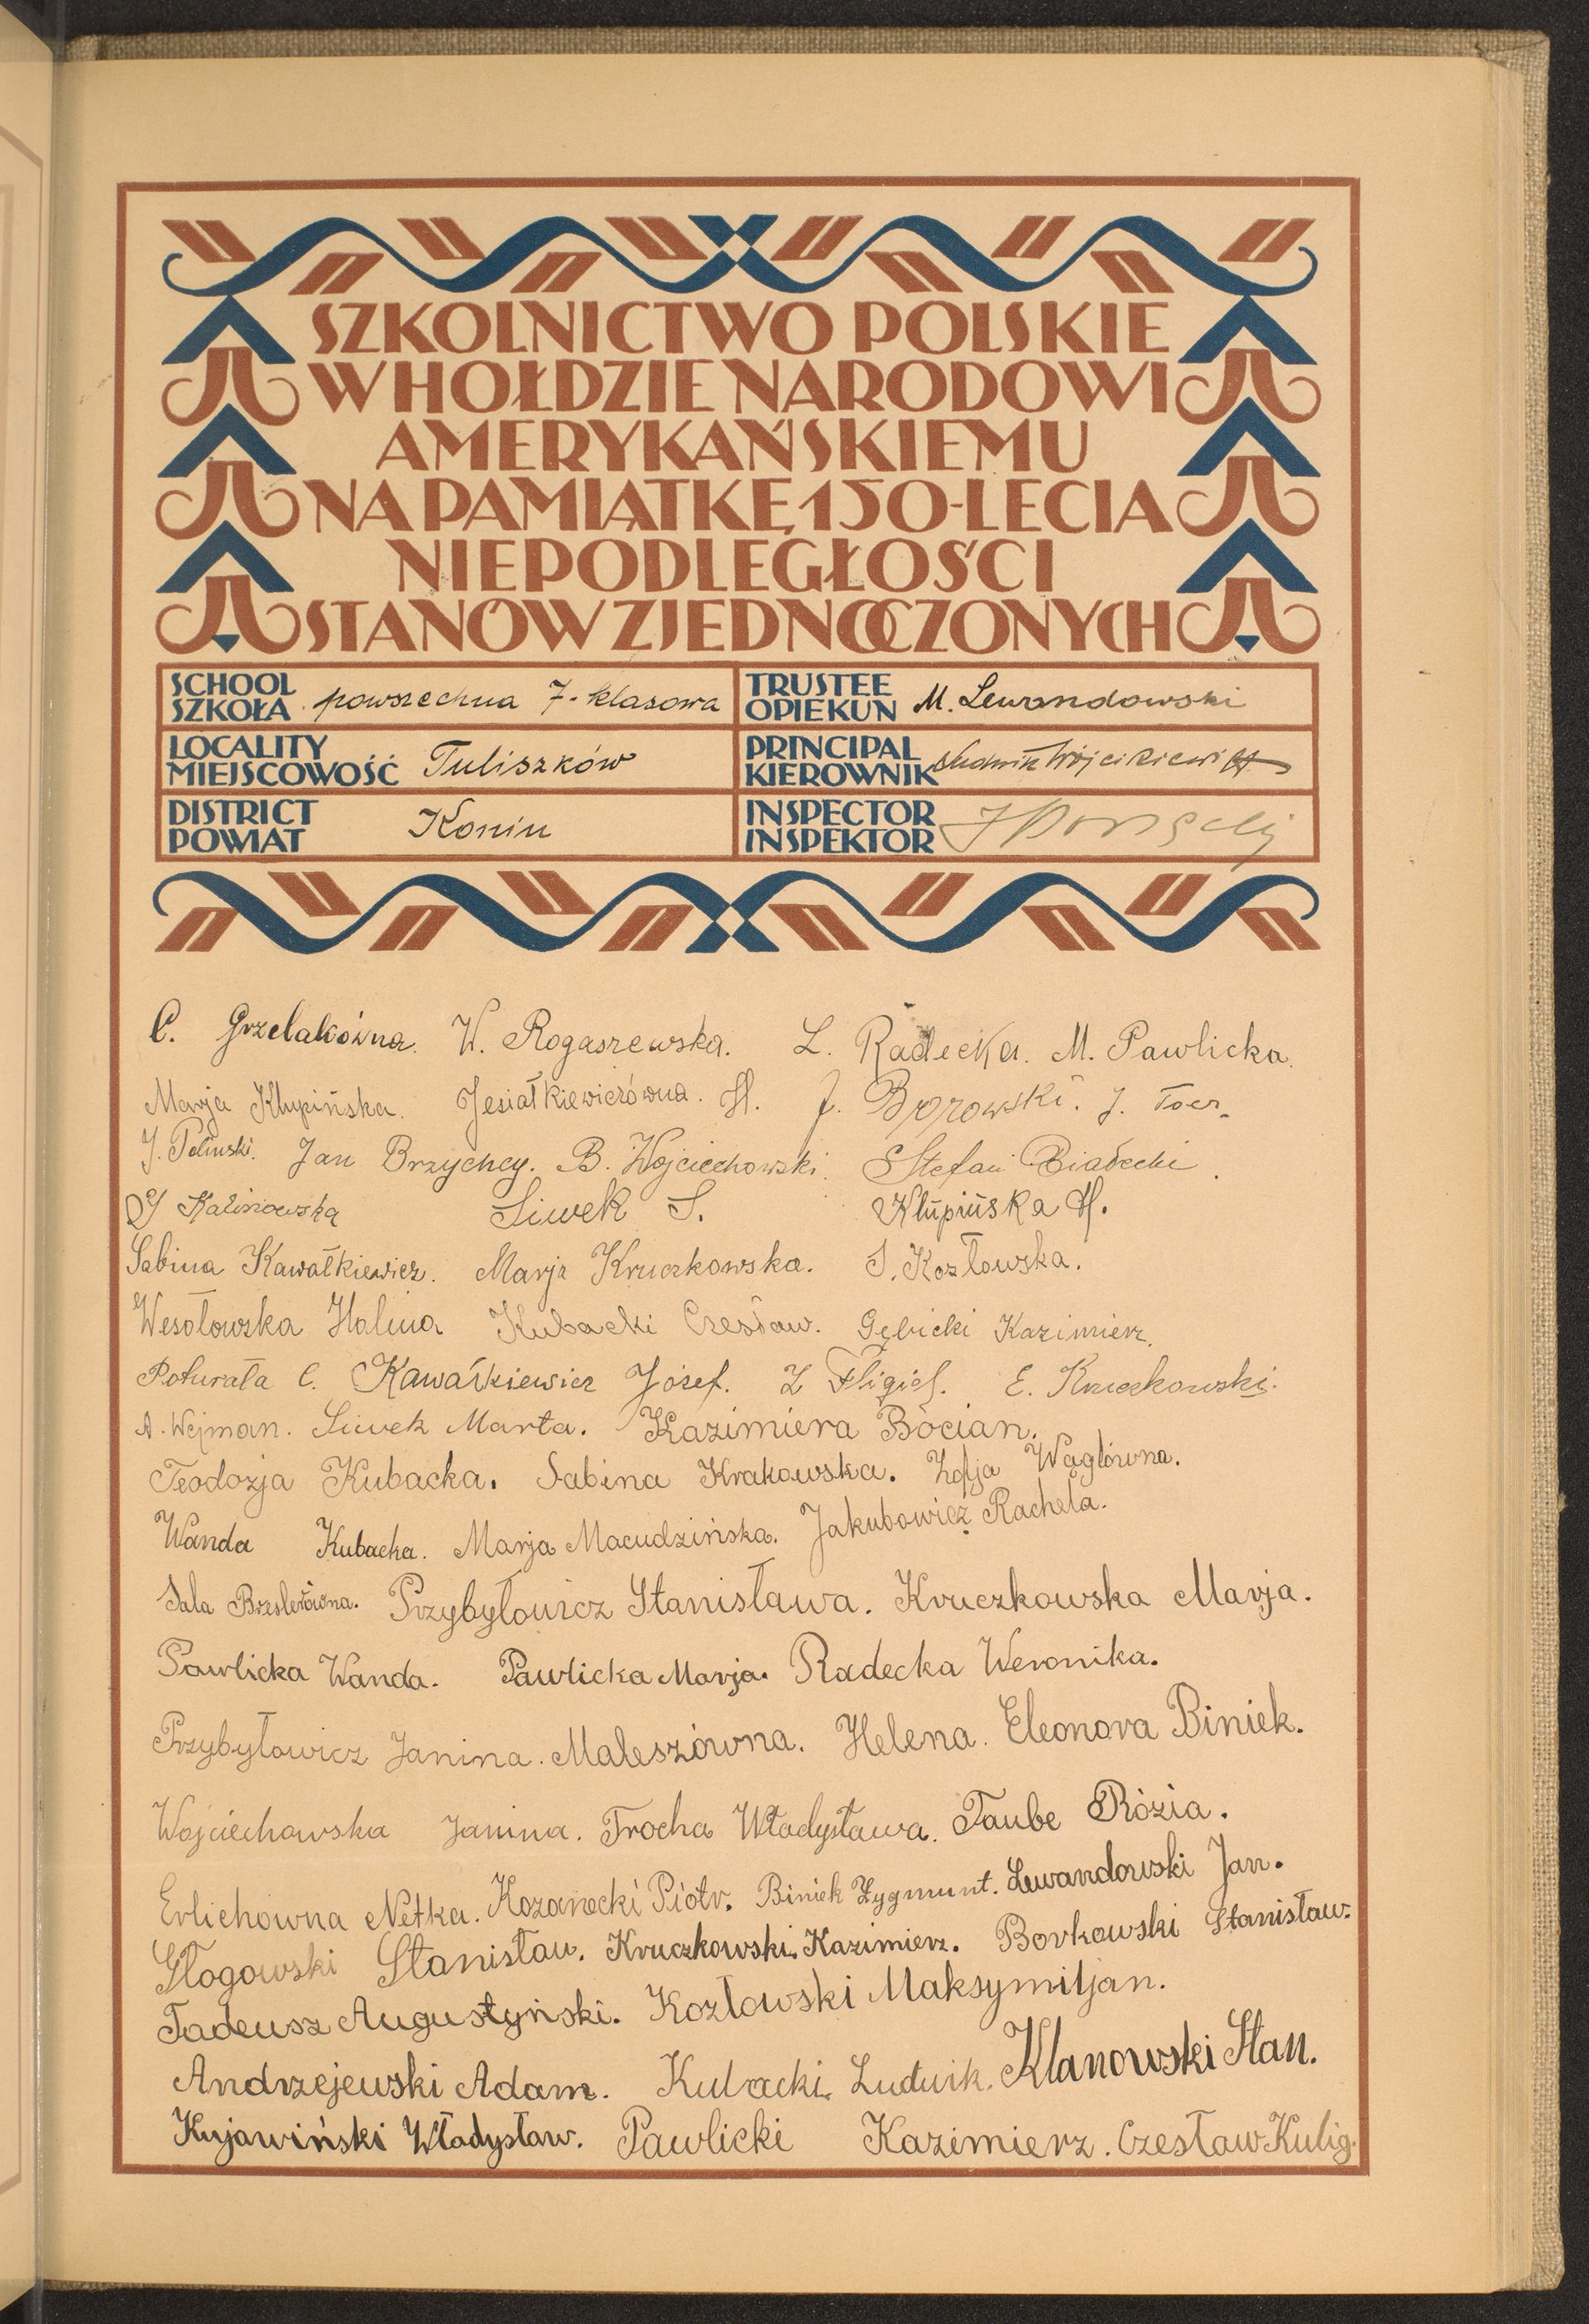 SZKOLNICTWO POLSKIE
W HOŁDZIE NARODOWI
AMERYKAŃSKIEMU
NA PAMIĄTKĘ 150-LECIA
NIEPODLEGŁOŚCI
STANÓW ZJEDNOCZONYCH
SCHOOL
SZKOŁA powszechna 7-klasowa
TRUSTEE
OPIEKUN M. Lewandowski
LOCALITY
MIEJSCOWOŚĆ Tuliszków
PRINCIPAL
KIEROWNIK Ludwik Wójcikiewicz
DISTRICT
POWIAT Konin
INSPECTOR
INSPEKTOR
C. Grzelakówna. W. Rogaszewska. L. Radecka. M. Pawlicka.
Marja Klupińska. Jesiałkiewiczówna. H. J. Borowski. J.
J. Peliński. Jan Brzychcy. B. Wojciechowski. Stefan Białecki.
Kalinowska Siwek S. Klupińska H.
Sabina Kawałkiewicz. Marja Kruczkowska. S. Kozłowska.
Wesołowska Halina Kubacki Czesław. Gębicki Kazimierz.
Poturała C. Kawałkiewicz Józef. Z Fligiel. E. Kruczkowski.
A. Wejman. Siwek Marta. Kazimiera Bocian.
Teodozja Kubacka. Sabina Krakowska. Zofja Wąglówna.
Wanda Kubacka. Marja Macudzińska. Jakubowicz Rachela.
Sala Breslerówna. Przybyłowicz Stanisława. Kruczkowska Marja.
Pawlicka Wanda. Pawlicka Marja. Radecka Weronika.
Przybyłowicz Janina. Maleszówna. Helena. Eleonora Biniek.
Wojciechowska Janina. Trocha Władysława. Taube Rózia.
Erlichówna Netka. Kozanecki Piotr. Biniek Zygmunt. Lewandowski Jan.
Głogowski Stanisław. Kruczkowski. Kazimierz. Borkowski Stanisław.
Tadeusz Augustyński. Kozłowski Maksymiljan.
Andrzejewski Adam. Kubacki Ludwik. Klanowski Stan.
Kujawiński Władysław. Pawlicki Kazimierz. Czesław Kulig.